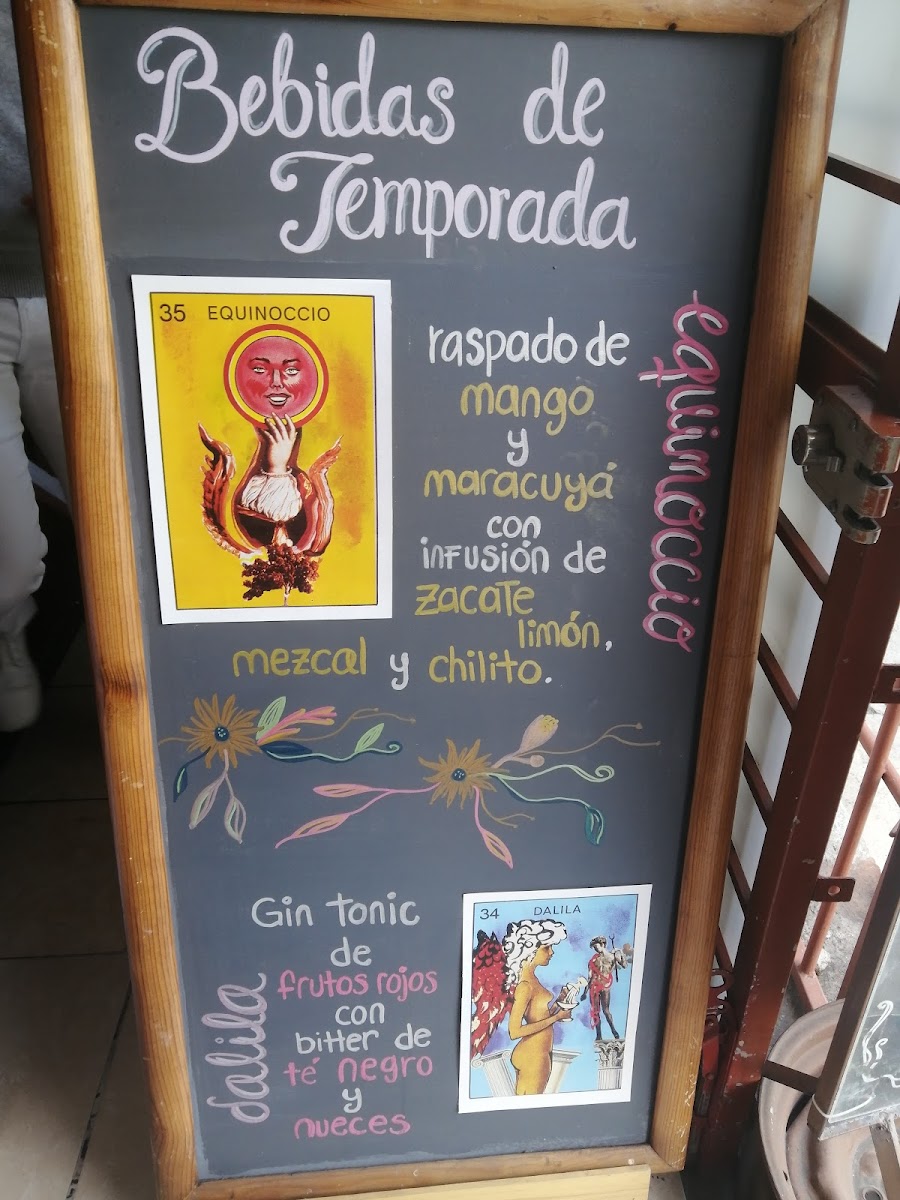 Bebidas de
Temporada
35 EQUINOCCIO
equinoccio
raspado de
mango
y
maracuyá
con
infusión de
zacate
limón,
mezcal y chilito.
Gin tonic
de
frutos rojos
con
bitter de
té negro
y
nueces
dalila
34 DALILA